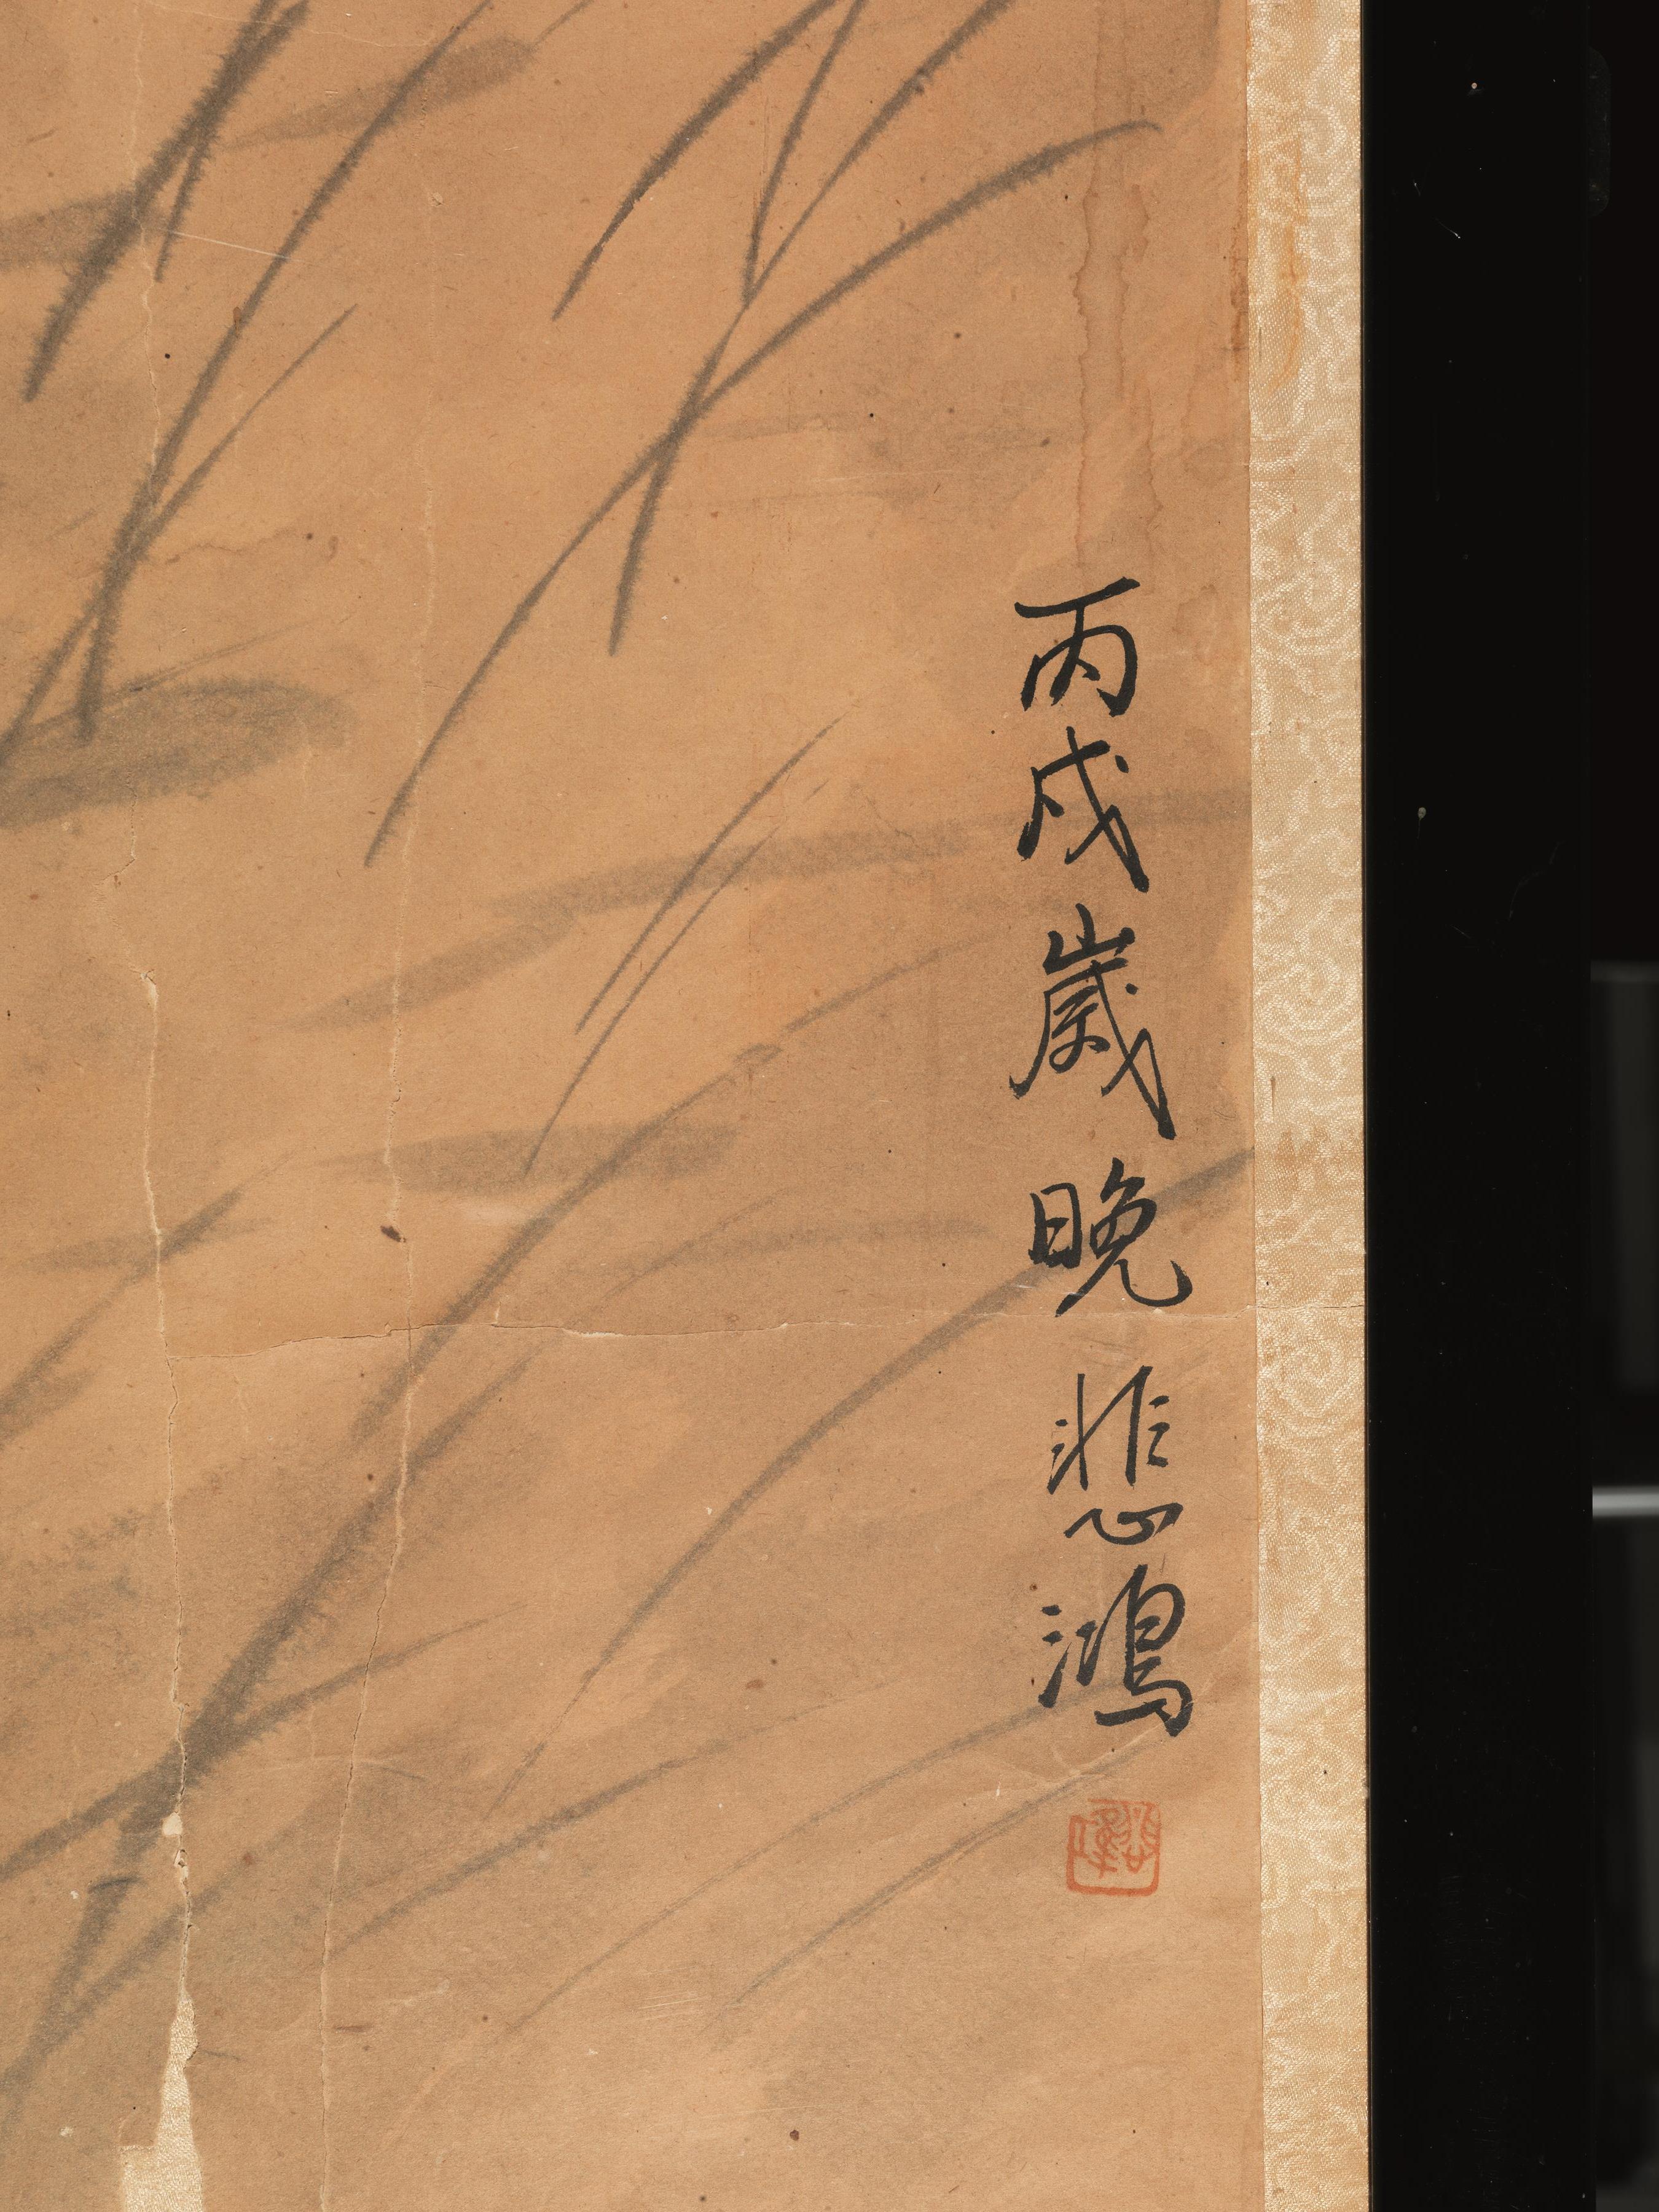 丙戌歲晚悲鴻